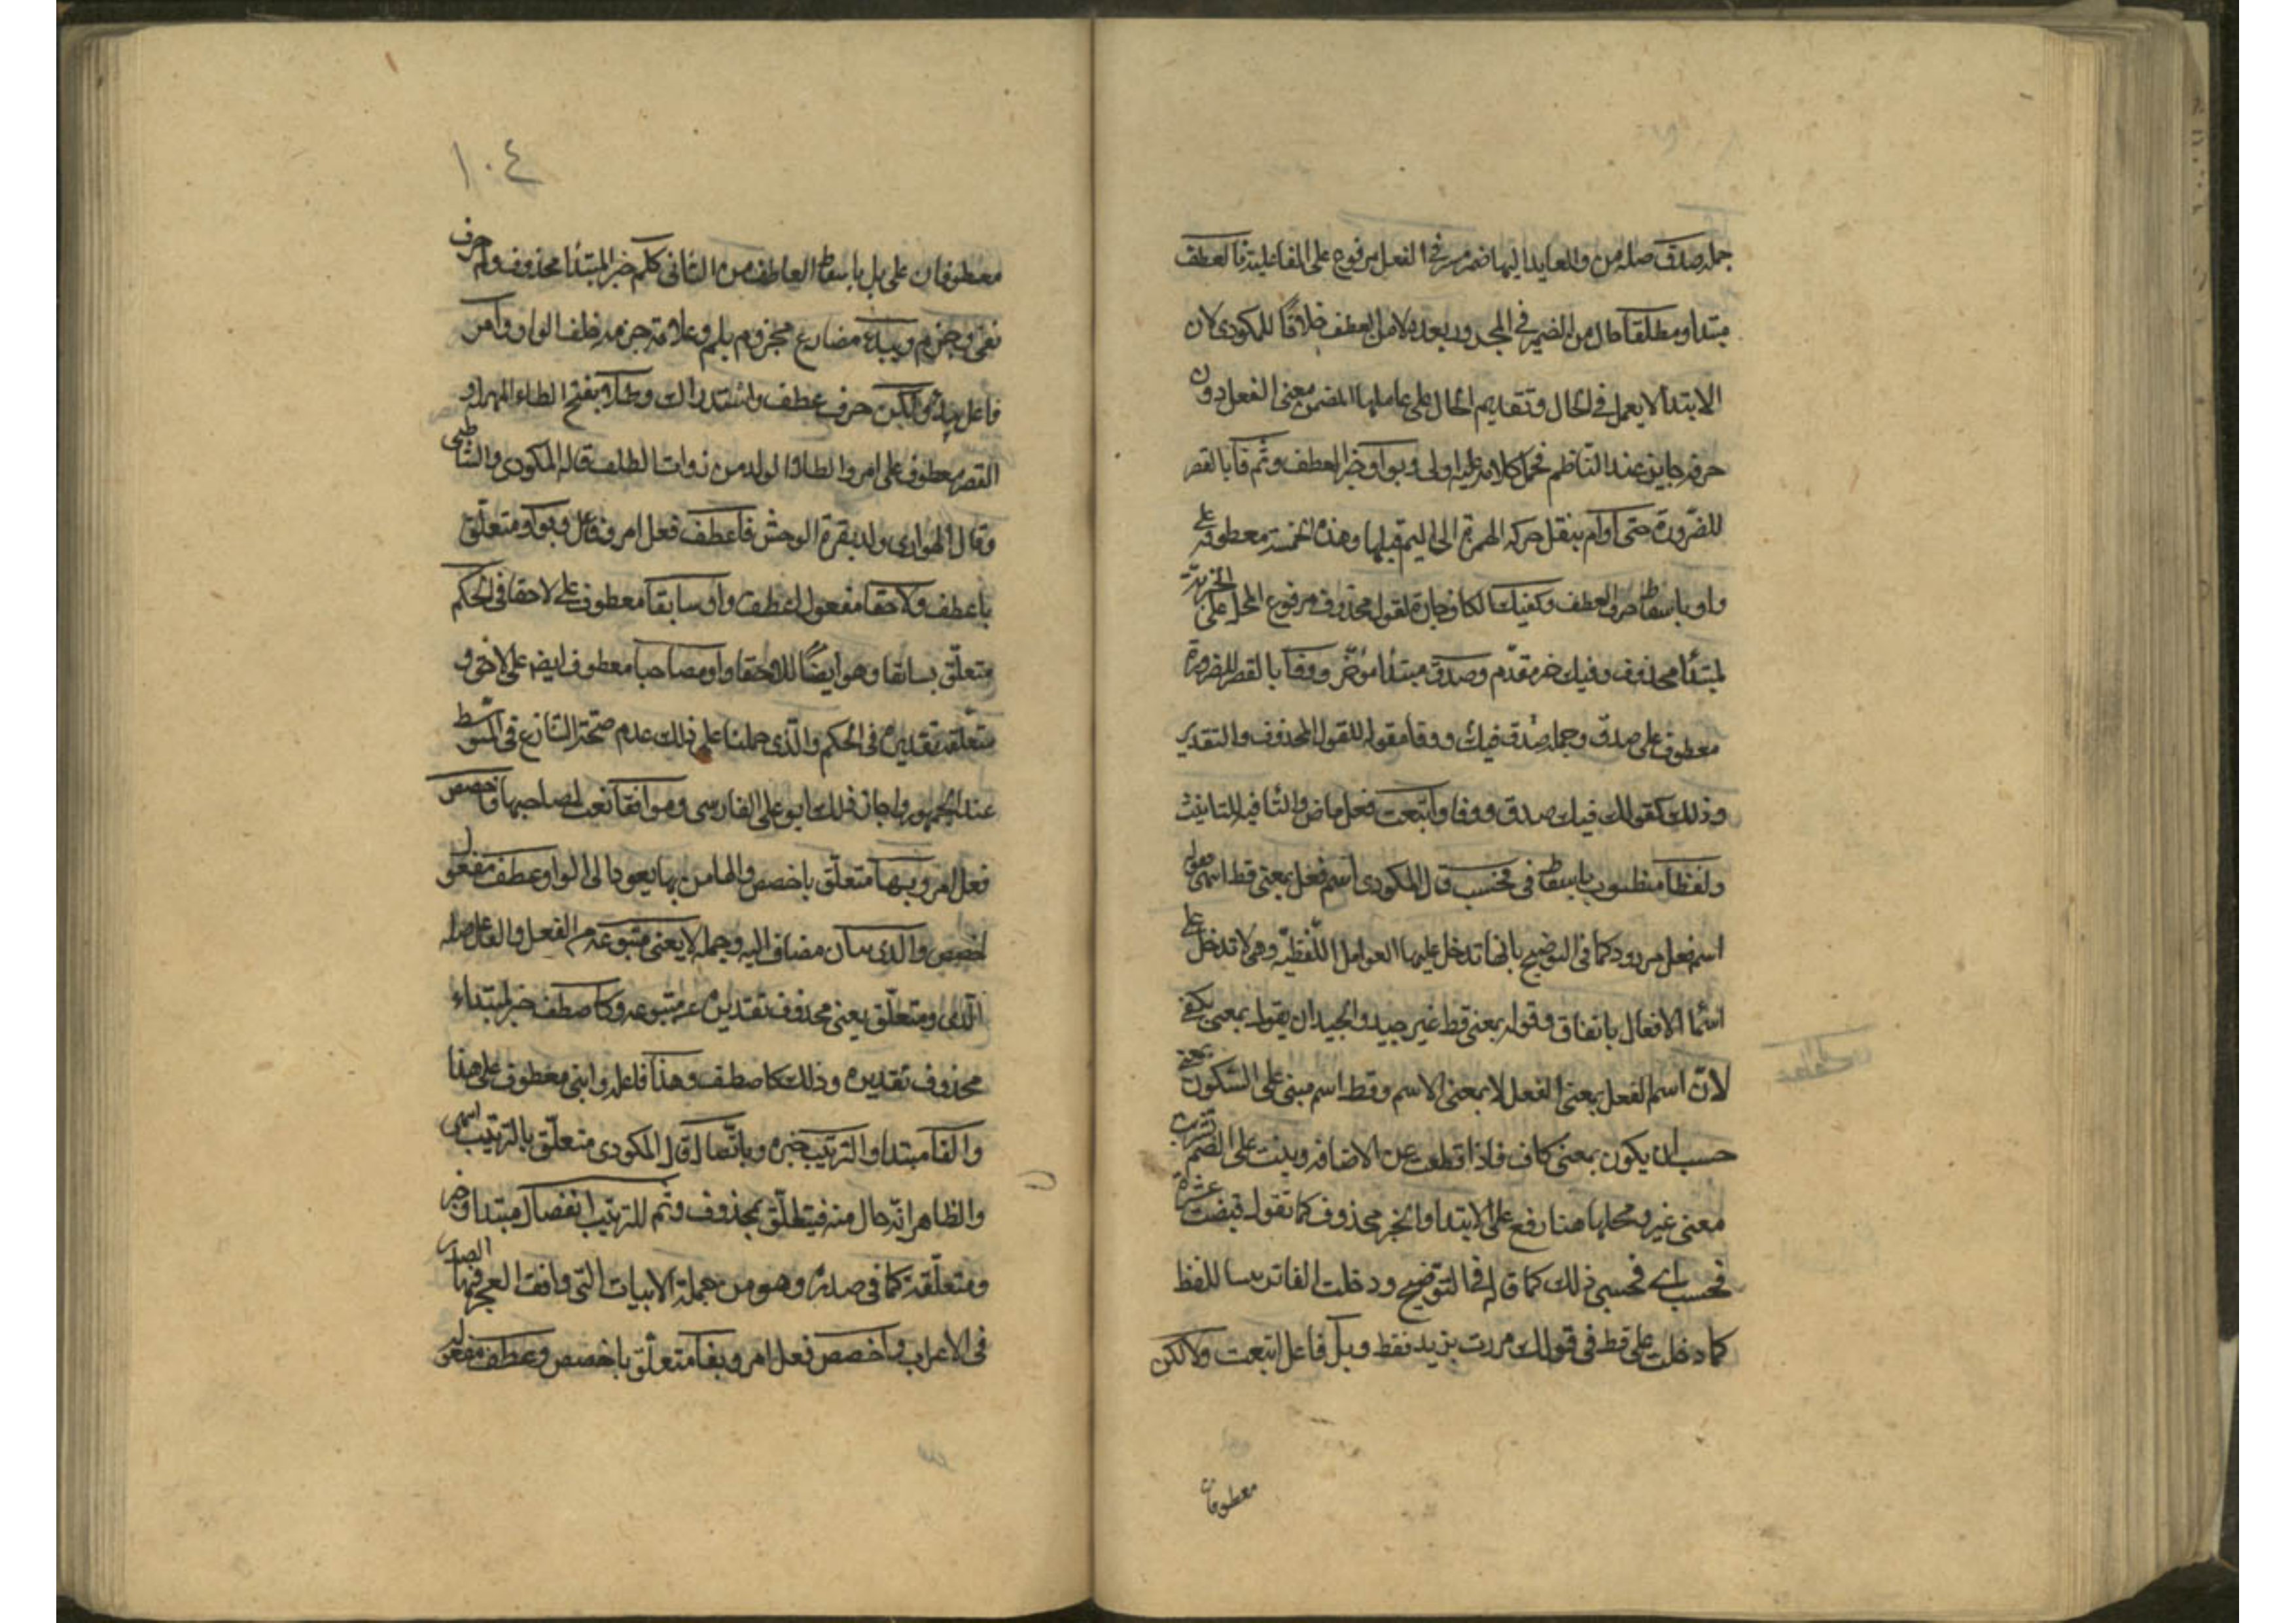 جملة صدق صلة من والعايد اليها ضمير في الفعل مرفوع على الفاعلية فالعطف
مبتدا ومطلقا حال من الضمير في المجرور بعده لا من العطف خلافًا للمكودي لان
الابتدا لا يعمل في الحال وتقديم الحال على عاملها المضمن معنى الفعل دون
حرفه جايز عند الناظم فحمل كلامه عليه اولى وبواو خبر العطف وثم فا بالقصر
للضرورة حتى أو أم بنقل حركة الهمزة الى الميم قبلها وهذه الخمسة معطوفة على
واو باسقاط حرف العطف وكفيك الكاف جارة لقول محذوف مرفوع المحل على الخبرية
لمبتدأ محذوف وفيك خبر مقدّم وصدق مبتدا مؤخّر ووفا بالقصر للضرورة
معطوف على صدق وجملة صدق فيك ووفا مقولة للقول المحذوف والتقدير
وذلك كقولك فيك صدق ووفا وأتبعت فعل ماض والتا فيه للتانيث
ولفظا منصوب باسقاط في فحسب قال المكودي اسم فعل بمعنى قط انتهى وقوله
اسم فعل مردود كما في التوضيح بانها تدخل عليها العوامل اللّفظيّة وهي لا تدخل على
اسما الافعال باتفاق وقوله بمعنى قط غير جيد والجيد ان يقول بمعنى يكفي
لأنّ اسم الفعل بمعنى الفعل لا بمعنى الاسم وقط اسم مبني على السكون بمعنى
حسب ان يكون بمعنى كاف فاذا قطعت عن الاضافة وبنيت على الضم تشربت
معنى غير ومحلها هنا رفع على الابتدا والخبر محذوف كما تقول قبضت عشرة
فحسب اي فحسبي ذلك كما قاله في التوضيح ودخلت الفا تزيينا للفظ
كما دخلت على قط في قولك مررت بزيد فقط وبل فاعل اتبعت ولا لكن
معطوفان
١٠٤
معطوفان على بل باسقاط العاطف من الثاني كلم خبر المبتدأ محذوف ولم حرف
نفي وجزم ويبد مضارع مجزوم بلم وعلامة جزمه حذف الواو وامرؤ
فاعل يبد ولكن حرف عطف واستدراك وطلا بفتح الطاء المهملة و
القصر معطوف على امرؤ والطلا الولد من ذوات الظلف قاله المكودي والشاطبي
وقال الهواري ولد بقرة الوحش فاعطف فعل امر وفاعل وبواو متعلّق
باعطف ولاحقا مفعول اعطف وأو سابقا معطوف على لاحقا في الحكم
متعلّق بسابقا وهو ايضًا للاحقا وأو مصاحبا معطوف ايضا على لاحقا و
متعلّقه تقديره في الحكم والذي حملنا على ذلك عدم صحّة التنازع في المتوسّط
عند الجمهور واجاز ذلك ابو علي الفارسي وموافقا نعت لمصاحبها واخصص
فعل امر وبها متعلّق باخصص والها من بها يعود الى الواو وعطف مفعول
اخصص والذي مضاف اليه وجملة لا يغني متبوعه من الفعل والفاعل صلة
الّذي ومتعلّق يغني محذوف تقديره عنه متبوعه وكاصطف خبر لمبتداء
محذوف تقديره وذلك كاصطف وهذا فاعله وابني معطوف على هذا
والفا مبتدا والترتيب خبره وباتّصال قال المكودي متعلّق بالترتيب انتهى
والظاهر انّه حال منه فيتعلّق بمحذوف وثم للترتيب بانفصال مبتدا وخبر
ومتعلّقه كما في صدره وهو من جملة الابيات التي وافق العجز فيها الصدر
في الاعراب واخصص فعل امر وبفا متعلّق باخصص وعطف مفعوله